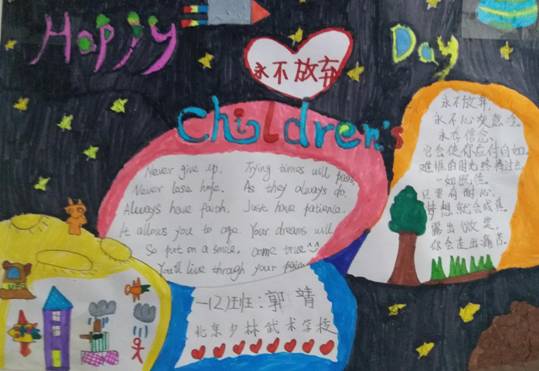 Happy
Children's
Day
永不放弃
Never give up,
Never lose hope.
Always have faith,
It allows you to cope.
Trying times will pass,
As they always do.
Just have patience,
Your dreams will
come true^^
So put on a smile,
You'll live through your pain
永不放弃,
永不心灰意冷。
永存信念,
它会使你应付自如。
难捱的时光终将过去
一如既往。
只要有耐心,
梦想就会成真。
露出微笑,
你会走出痛苦。
一(2)班:郭靖
北京少林武术学校